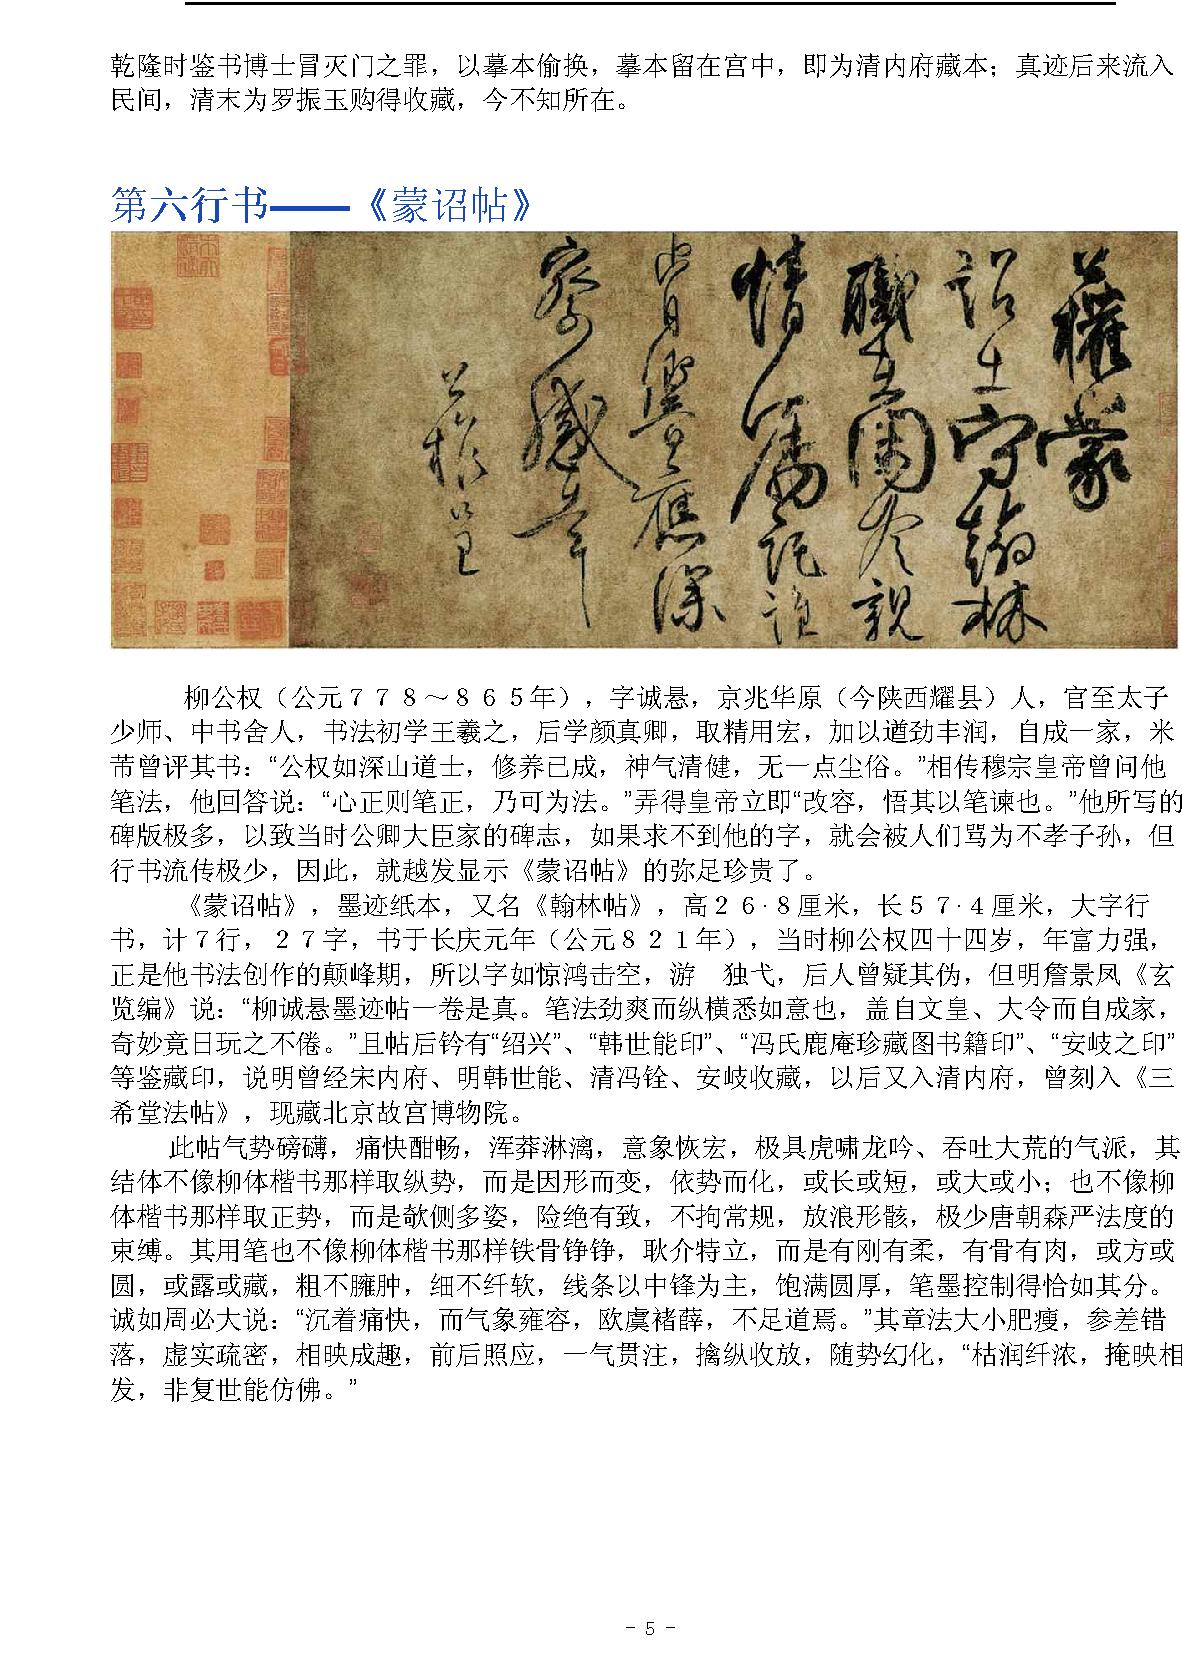 乾隆时鉴书博士冒灭门之罪，以摹本偷换，摹本留在宫中，即为清内府藏本；真迹后来流入
民间，清末为罗振玉购得收藏，今不知所在。
第六行书——《蒙诏帖》
公權蒙
詔出守翰林
職在閒冷親
情囑託誰
肯響應深
察感幸
公權呈
柳公权（公元７７８～８６５年），字诚悬，京兆华原（今陕西耀县）人，官至太子
少师、中书舍人，书法初学王羲之，后学颜真卿，取精用宏，加以遒劲丰润，自成一家，米
芾曾评其书：“公权如深山道士，修养已成，神气清健，无一点尘俗。”相传穆宗皇帝曾问他
笔法，他回答说：“心正则笔正，乃可为法。”弄得皇帝立即“改容，悟其以笔谏也。”他所写的
碑版极多，以致当时公卿大臣家的碑志，如果求不到他的字，就会被人们骂为不孝子孙，但
行书流传极少，因此，就越发显示《蒙诏帖》的弥足珍贵了。
《蒙诏帖》，墨迹纸本，又名《翰林帖》，高２６·８厘米，长５７·４厘米，大字行
书，计７行，２７字，书于长庆元年（公元８２１年），当时柳公权四十四岁，年富力强，
正是他书法创作的颠峰期，所以字如惊鸿击空，游　独弋，后人曾疑其伪，但明詹景凤《玄
览编》说：“柳诚悬墨迹帖一卷是真。笔法劲爽而纵横悉如意也，盖自文皇、大令而自成家，
奇妙竟日玩之不倦。”且帖后钤有“绍兴”、“韩世能印”、“冯氏鹿庵珍藏图书籍印”、“安岐之印”
等鉴藏印，说明曾经宋内府、明韩世能、清冯铨、安岐收藏，以后又入清内府，曾刻入《三
希堂法帖》，现藏北京故宫博物院。
此帖气势磅礴，痛快酣畅，浑莽淋漓，意象恢宏，极具虎啸龙吟、吞吐大荒的气派，其
结体不像柳体楷书那样取纵势，而是因形而变，依势而化，或长或短，或大或小；也不像柳
体楷书那样取正势，而是欹侧多姿，险绝有致，不拘常规，放浪形骸，极少唐朝森严法度的
束缚。其用笔也不像柳体楷书那样铁骨铮铮，耿介特立，而是有刚有柔，有骨有肉，或方或
圆，或露或藏，粗不臃肿，细不纤软，线条以中锋为主，饱满圆厚，笔墨控制得恰如其分。
诚如周必大说：“沉着痛快，而气象雍容，欧虞褚薛，不足道焉。”其章法大小肥瘦，参差错
落，虚实疏密，相映成趣，前后照应，一气贯注，擒纵收放，随势幻化，“枯润纤浓，掩映相
发，非复世能仿佛。”
- 5 -